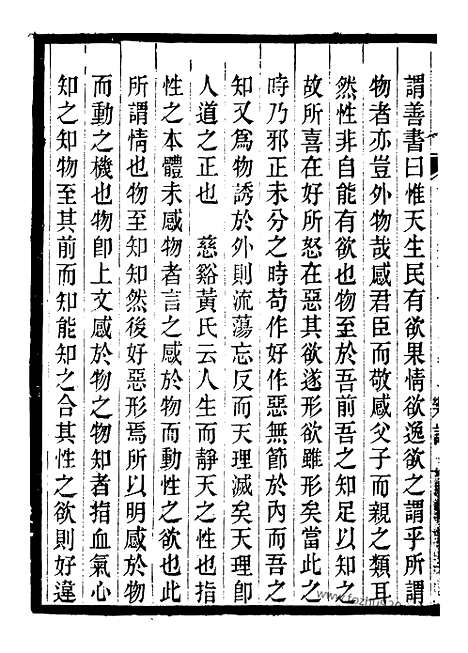 謂善書曰惟天生民有欲果情欲逸欲之謂乎所謂
物者亦豈外物哉感君臣而敬感父子而親之類耳
然性非自能有欲也物至於吾前吾之知足以知之
故所喜在好所怒在惡其欲遂形欲雖形矣當此之
時乃邪正未分之時苟作好作惡無節於內而吾之
知又爲物誘於外則流蕩忘反而天理滅矣天理卽
人道之正也　慈谿黃氏云人生而靜天之性也指
性之本體未感物者言之感於物而動性之欲也此
所謂情也物至知知然後好惡形焉所以明感於物
而動之機也物卽上文感於物之物知者指血氣心
知之知物至其前而知能知之合其性之欲則好違